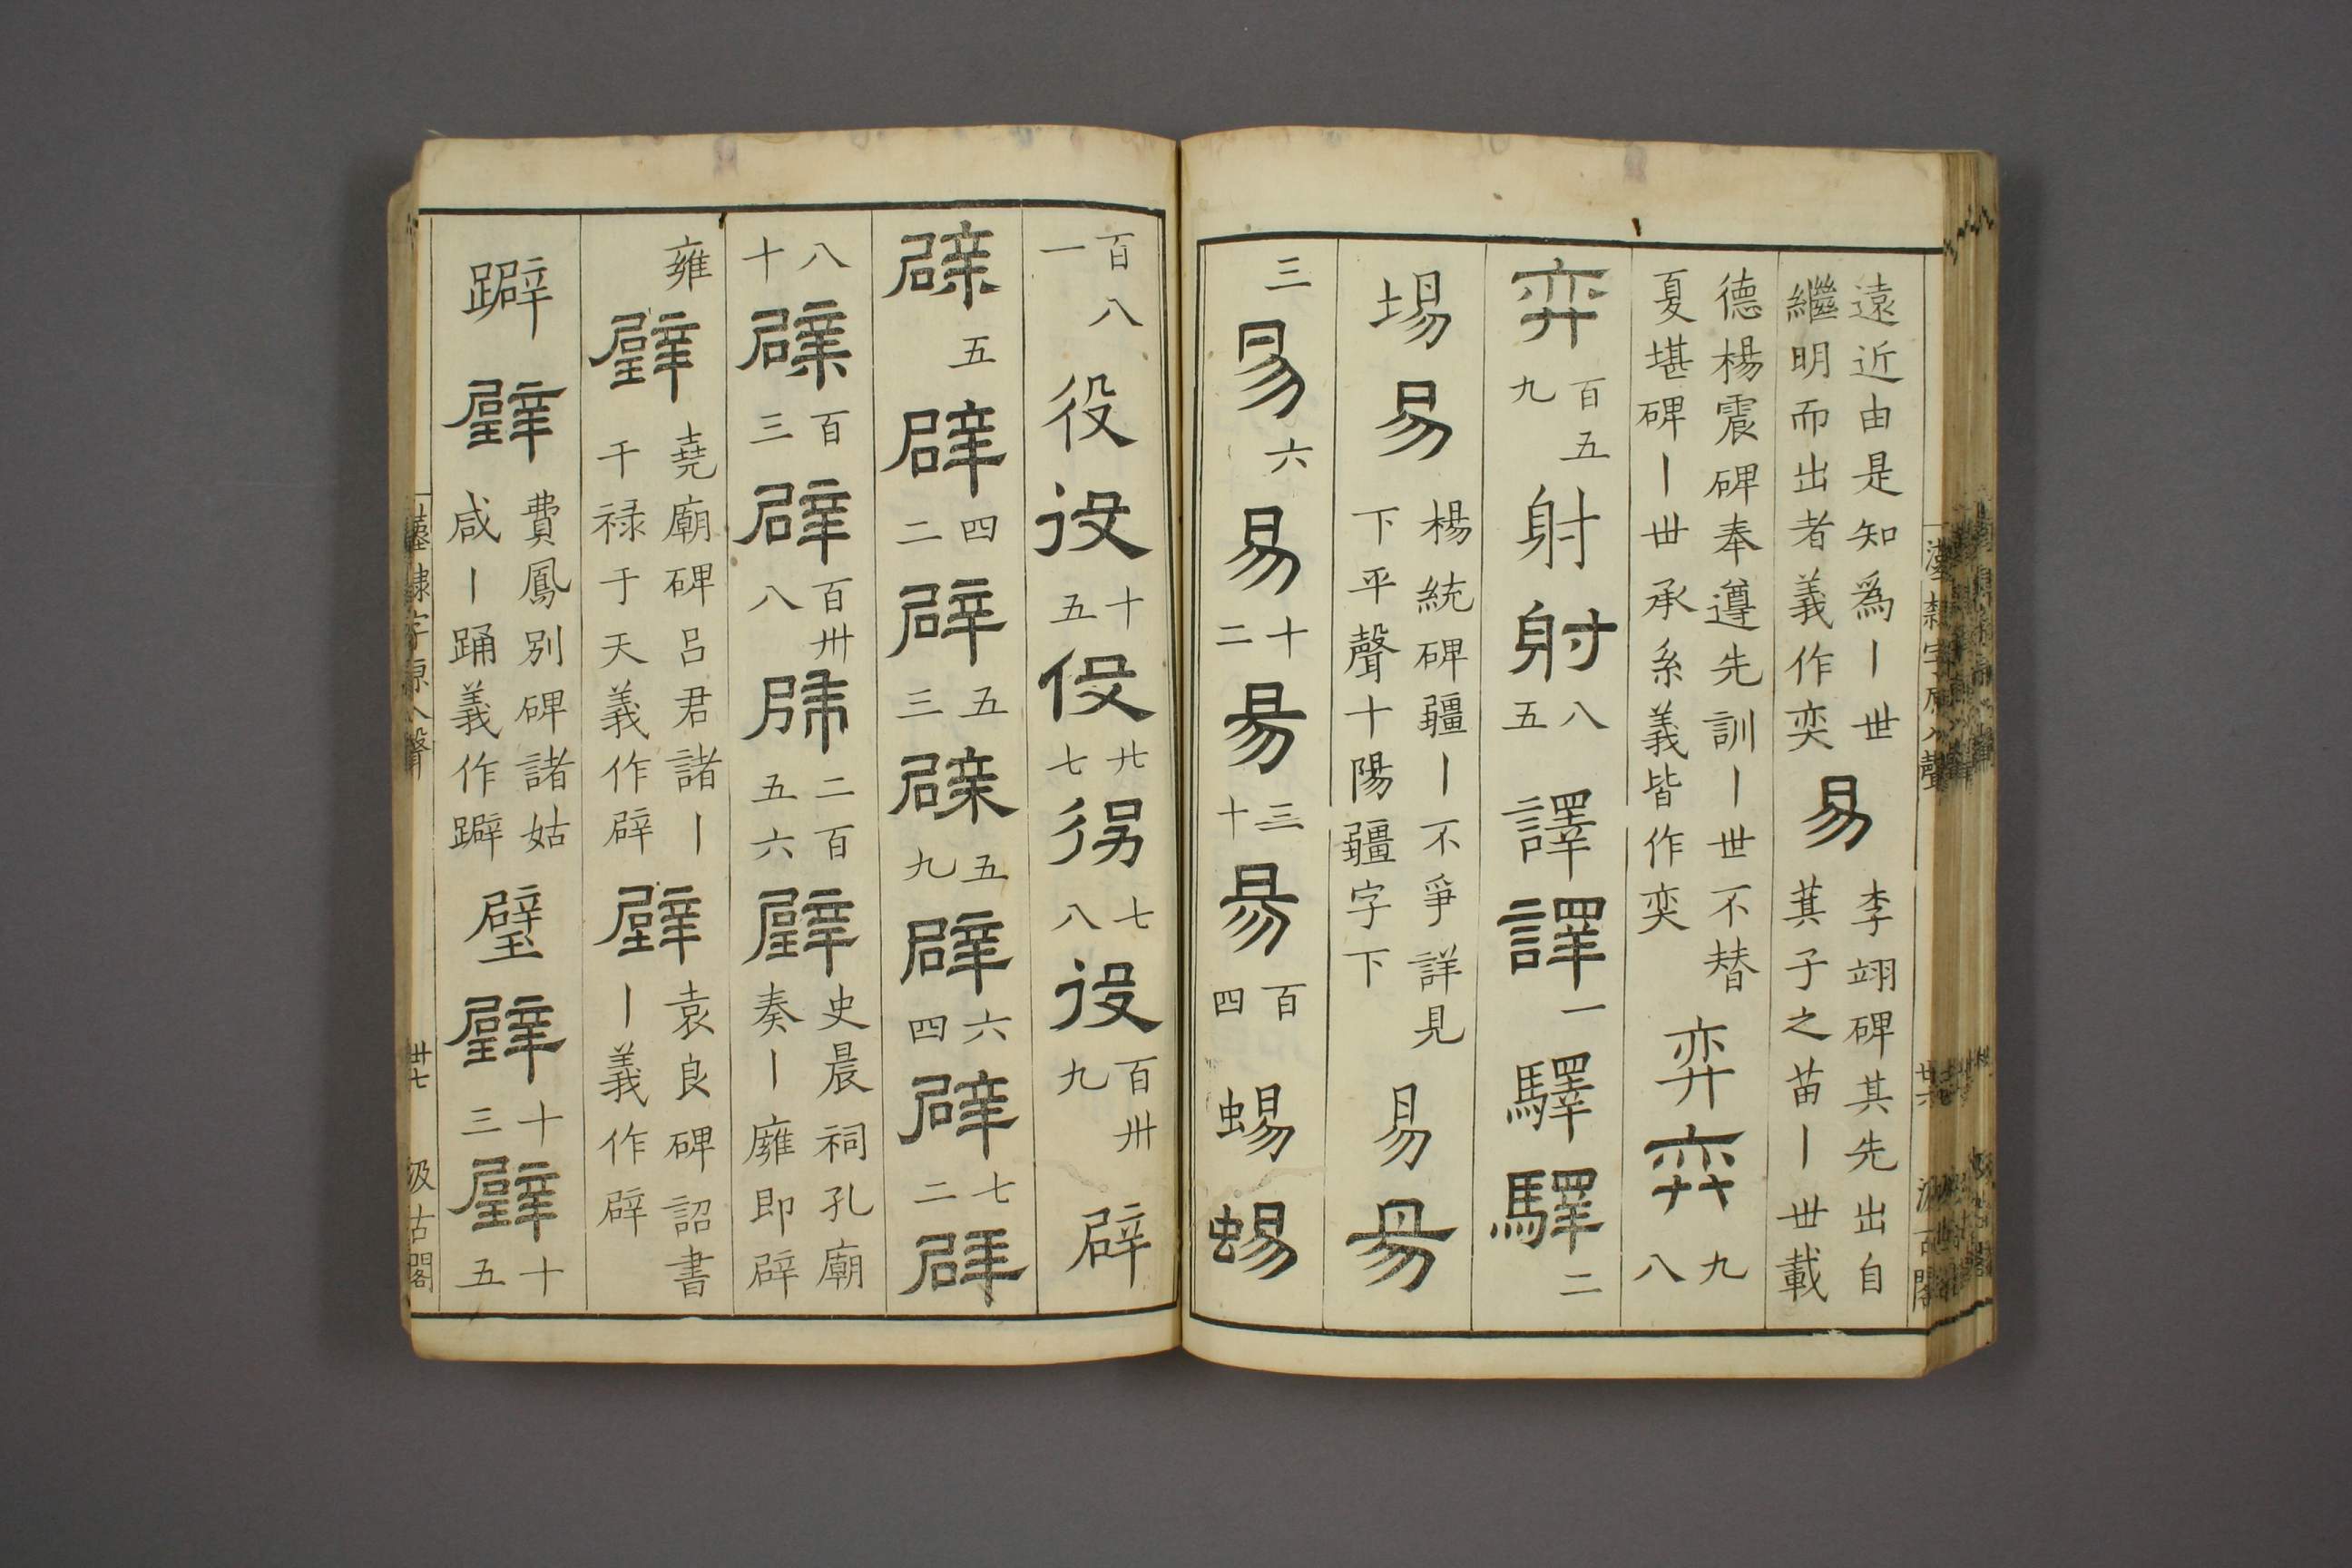 遠近由是知爲丨世
繼明而出者義作奕
易
李翊碑其先出自
萁子之苗丨世載
德楊震碑奉遵先訓丨世不替
夏堪碑丨世承系義皆作奕
弈
弈
九
八
弈
百五
九
射
射
八
五
譯
譯
一
驛
驛
二
埸
易
楊統碑疆丨不爭詳見
下平聲十陽疆字下
易
易
三
易
六
易
十
二
易
三
十
易
百
四
蜴
蜴
百八
一
役
役
十
五
役
廿
七
役
七
八
役
百卅
九
辟
辟
五
辟
四
二
辟
五
三
辟
五
九
辟
六
四
辟
七
二
辟
八
十
辟
百
三
辟
百卅
八
辟
二百
五六
辟
史晨祠孔廟
奏丨廱即辟
雍
辟
堯廟碑呂君諸丨
干禄于天義作辟
辟
袁良碑詔書
丨義作辟
躃
辟
費鳳別碑諸姑
咸丨踊義作躃
璧
璧
十
三
璧
十
五
漢隸字原入聲
卅七
汲古閣